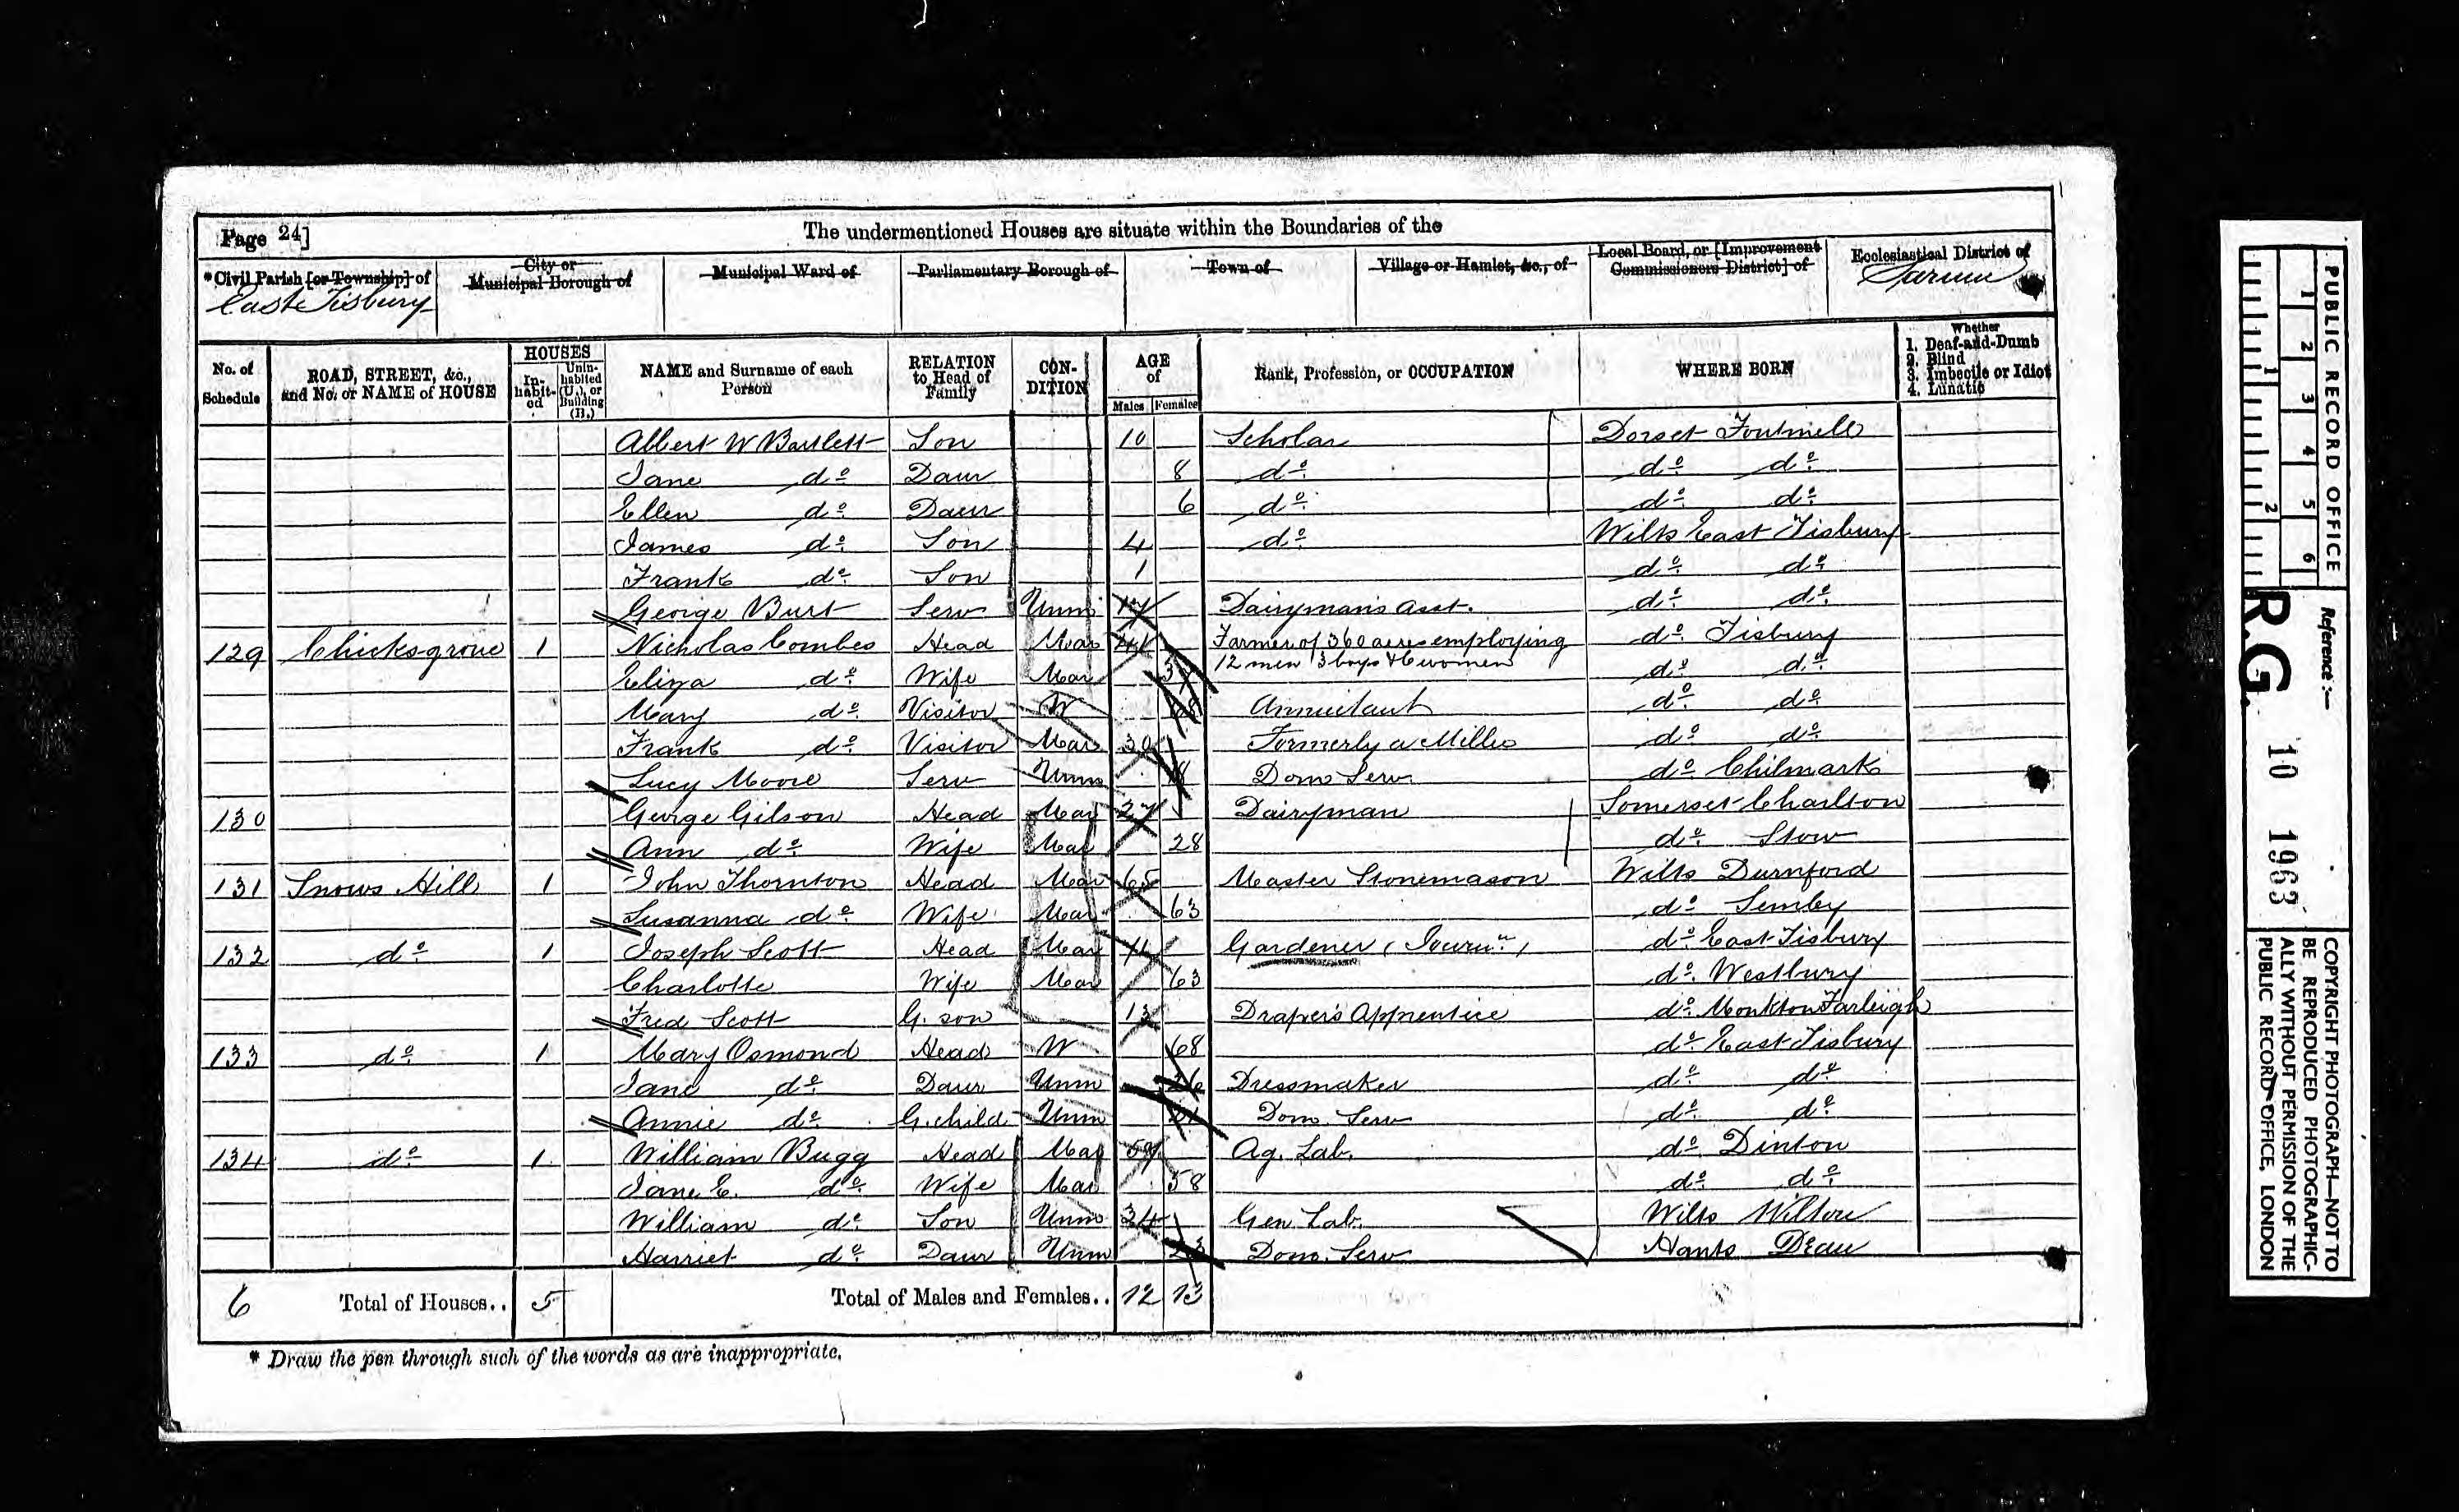 Page 24]
The undermentioned Houses are situate within the Boundaries of the
*Civil Parish [or Township] of
East Tisbury
City or Municipal Borough of
Municipal Ward of
Parliamentary Borough of
Town of
Village or Hamlet, &c., of
Local Board, or [Improvement Commissioners District] of
Ecclesiastical District of
Sarum
No. of Schedule
ROAD, STREET, &c., and No. or NAME of HOUSE
HOUSES
In-habit-ed
Unin-habited (U.), or Building (B.)
NAME and Surname of each Person
RELATION to Head of Family
CON-DITION
AGE of
Males Females
Rank, Profession, or OCCUPATION
WHERE BORN
Whether
1. Deaf-and-Dumb
2. Blind
3. Imbecile or Idiot
4. Lunatic
Albert W Bartlett Son 10 Scholar Dorset Fontmell
Jane do Daur 8 do do do
Ellen do Daur 6 do do do
James do Son 4 do Wilts East Tisbury
Frank do Son 1 do do
George Burt Serv Unm 17 Dairyman's Asst. do do
129 Chicksgrove 1 Nicholas Combes Head Mar Farmer of 360 acres employing 12 men 3 boys & 6 women do Tisbury
Eliza do Wife Mar do do
Mary do Visitor W Annuitant do do
Frank do Visitor Mar 30 Formerly a Miller do do
Lucy Moore Serv Unm 18 Dom Serv. do Chilmark
130 George Gilson Head Mar 27 Dairyman Somerset Charlton
Ann do Wife Mar 28 do Stow
131 Snows Hill 1 John Thornton Head Mar 65 Master Stonemason Wilts Durnford
Susanna do Wife Mar 63 do Semley
132 do 1 Joseph Scott Head Mar Gardener (Journ) do East Tisbury
Charlotte Wife Mar 63 do Westbury
Fred Scott G. son 13 Drapers Apprentice do Monkton Farleigh
133 do 1 Mary Osmond Head W 68 do East Tisbury
Jane do Daur Unm 26 Dressmaker do do
Annie do G. child Unm Dom. Serv do do
134 do 1 William Bugg Head Mar 59 Ag. Lab. do Dinton
Jane E. do Wife Mar 58 do do
William do Son Unm 34 Gen Lab. Wilts Wilton
Harriet do Daur Unm 23 Dom. Serv Hants Dean
6 Total of Houses.. 5 Total of Males and Females.. 12 13
* Draw the pen through such of the words as are inappropriate.
1 2 3 4 5 6
1 2
PUBLIC RECORD OFFICE
Reference:—
R.G. 10 1963
COPYRIGHT PHOTOGRAPH—NOT TO BE REPRODUCED PHOTOGRAPHIC-ALLY WITHOUT PERMISSION OF THE PUBLIC RECORD OFFICE, LONDON